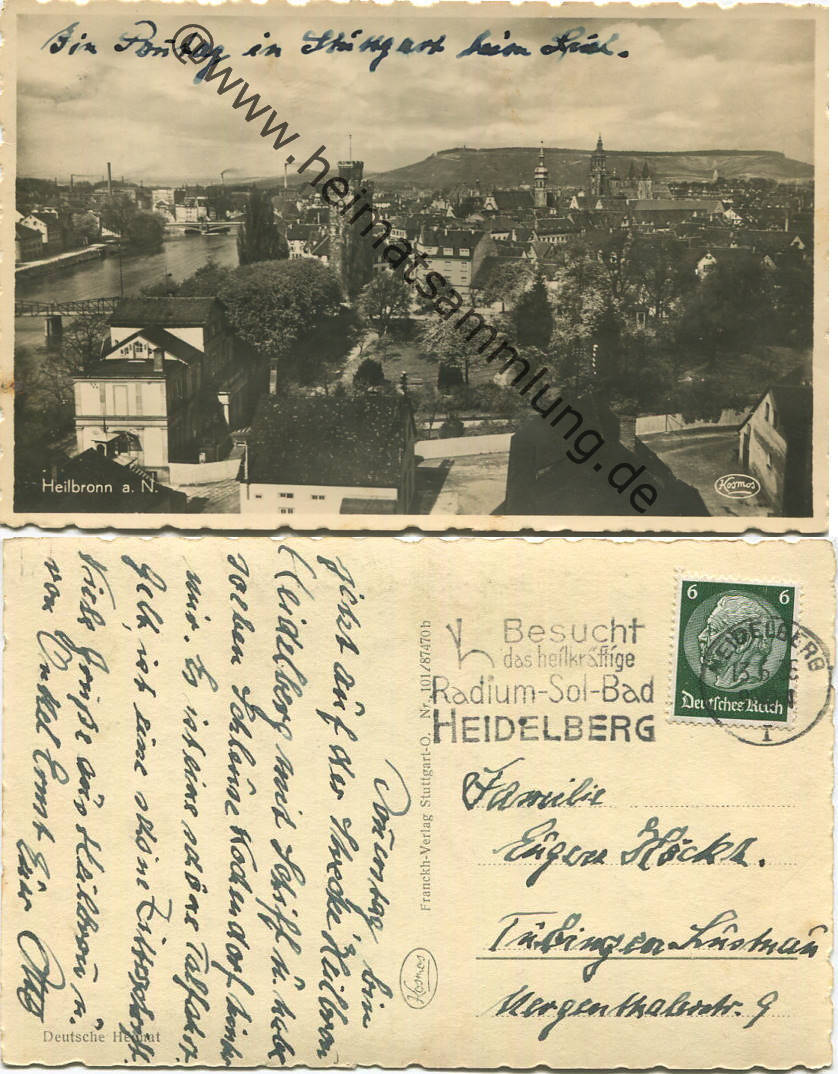 Bin Sonntag in Stuttgart beim
©www.heimatsammlung.de
Heilbronn a. N.
Kosmos
Donnerstag bin
jetzt auf der Strecke Heilbron
Heidelberg mit Schiff u. habe
soeben Schleuse hinter
mir. Es ist eine schöne Talfahrt
Gelt, ist eine schöne
Viele Grüße aus Heilbron u.
von Onkel Ernst Euer Otto
Deutsche Heimat
Franckh-Verlag Stuttgart-O. Nr. 101/87470b
Kosmos
Besucht
das heilkräftige
Radium-Sol-Bad
HEIDELBERG
6 6
Deutsches Reich
HEIDELBERG
1
Familie
Eugen
Tübingen Lustnau
Mergenthalerstr. 9